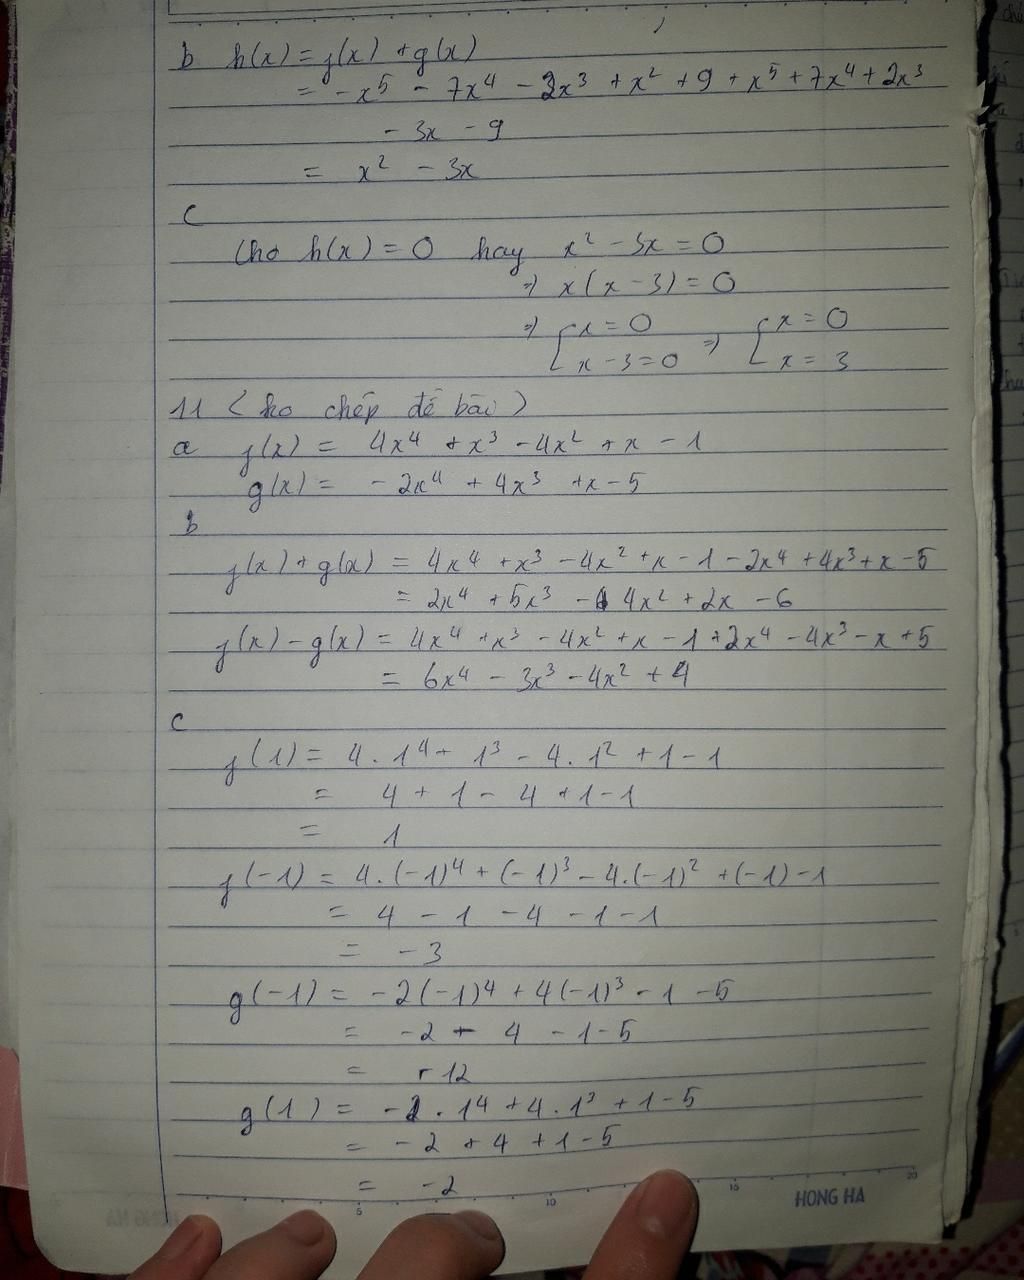 b h(x) = f(x) + g(x)
= -x⁵ - 7x⁴ - 2x³ + x² + 9 + x⁵ + 7x⁴ + 2x³
- 3x - 9
= x² - 3x
c
Cho h(x) = 0 hay x² - 3x = 0
⇒ x(x - 3) = 0
⇒ [x = 0 ⇒ [x = 0
[x - 3 = 0 [x = 3
11 (ko chép đề bài)
a f(x) = 4x⁴ + x³ - 4x² + x - 1
g(x) = -2x⁴ + 4x³ + x - 5
b
f(x) + g(x) = 4x⁴ + x³ - 4x² + x - 1 - 2x⁴ + 4x³ + x - 5
= 2x⁴ + 5x³ - 4x² + 2x - 6
f(x) - g(x) = 4x⁴ + x³ - 4x² + x - 1 + 2x⁴ - 4x³ - x + 5
= 6x⁴ - 3x³ - 4x² + 4
c
f(1) = 4.1⁴ + 1³ - 4.1² + 1 - 1
= 4 + 1 - 4 + 1 - 1
= 1
f(-1) = 4.(-1)⁴ + (-1)³ - 4.(-1)² + (-1) - 1
= 4 - 1 - 4 - 1 - 1
= -3
g(-1) = -2(-1)⁴ + 4(-1)³ - 1 - 5
= -2 - 4 - 1 - 5
= -12
g(1) = -2.1⁴ + 4.1³ + 1 - 5
= -2 + 4 + 1 - 5
= -2
5 10 15 20
HONG HA